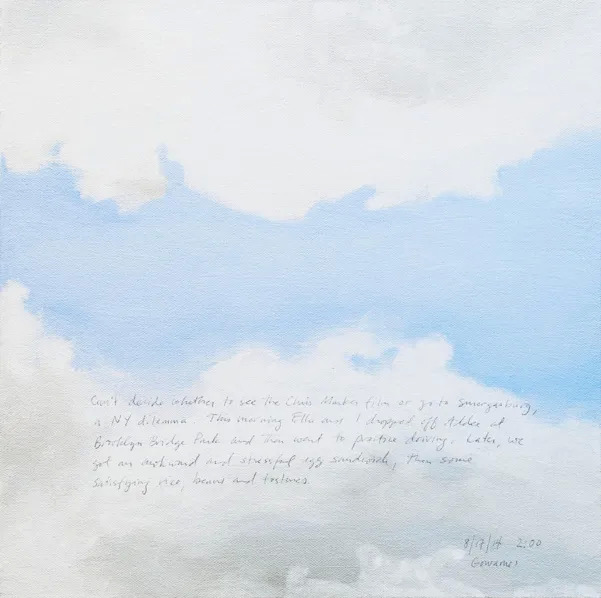 Can't decide whether to see the Chris Marker film or go to Smorgasburg,
a NY dilemma. This morning Ella and I dropped off Addee at
Brooklyn Bridge Park and then went to practice driving. Later, we
got an awkward and stressful egg sandwich, then some
satisfying rice, beans and
8/17/14 2:00
Gowanus